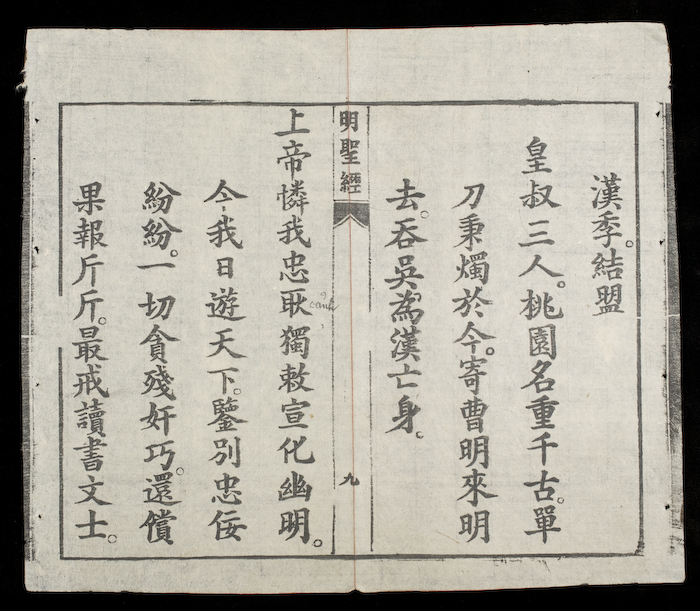 漢季。結盟
皇叔三人。桃園名重千古。單
刀秉燭於今。寄曹明來明
去。吞吳。為漢亡身。
明聖經
九
上帝憐我忠耿獨敕宣化幽明。
今我日遊天下。鑒別忠佞
紛紛。一切貪殘奸巧。還償
果報斤斤。最戒讀書文士。
cảnh